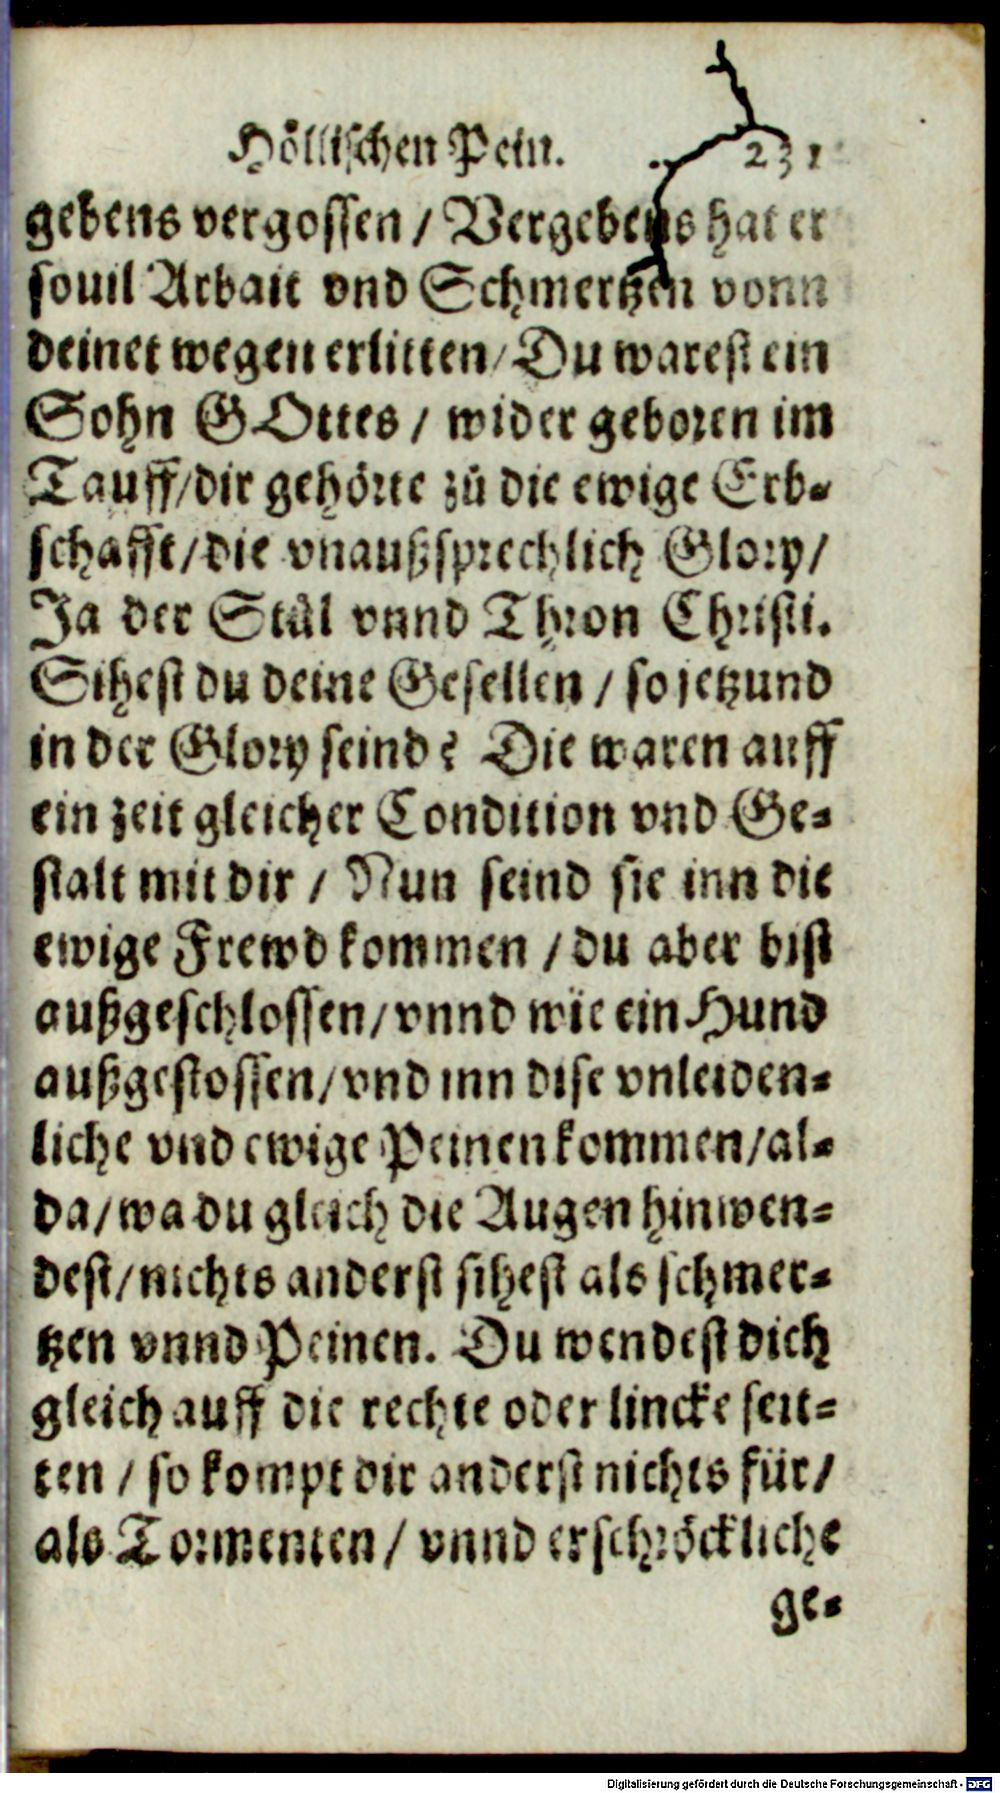 Höllischen Pein. 231
gebens vergossen / Vergebens hat er
souil Arbait vnd Schmertzen vonn
deinet wegen erlitten / Du warest ein
Sohn GOttes / wider geboren im
Tauff / dir gehörte zů die ewige Erb-
schafft / die vnaußsprechlich Glory /
Ja der Stůl vnnd Thron Christi.
Sihest du deine Gesellen / so jetzund
in der Glory seind? Die waren auff
ein zeit gleicher Condition vnd Ge-
stalt mit dir / Nun seind sie inn die
ewige Frewd kommen / du aber bist
außgeschlossen / vnnd wie ein Hund
außgestossen / vnd inn dise vnleiden-
liche vnd ewige Peinen kommen / al-
da / wa du gleich die Augen hinwen-
dest / nichts anderst sihest als schmer-
tzen vnnd Peinen. Du wendest dich
gleich auff die rechte oder lincke seit-
ten / so kompt dir anderst nichts für /
als Tormenten / vnnd erschröckliche
ge-
Digitalisierung gefördert durch die Deutsche Forschungsgemeinschaft - DFG